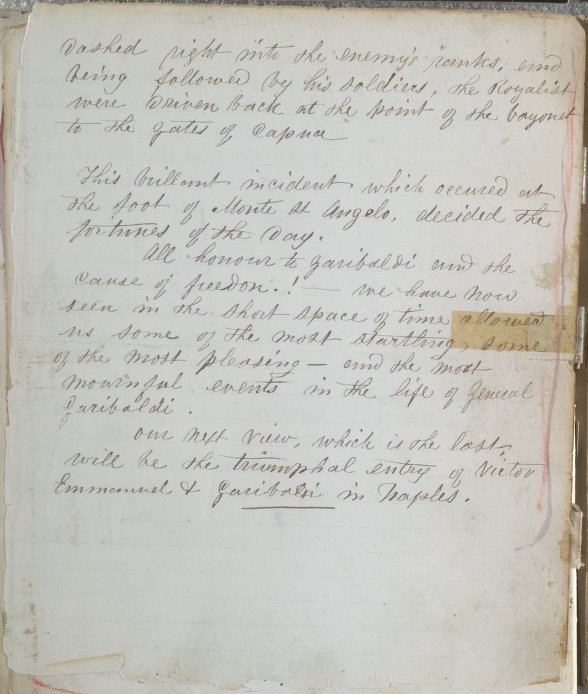 dashed right into the enemy's ranks, and
being followed by his soldiers, the Royalist
were driven back at the point of the bayonet
to the gates of Capua
This brillant incident which occured at
the foot of Monte St Angelo, decided the
fortunes of the day.
All honour to Garibaldi and the
cause of freedon.! — we have now
seen in the short space of time allowed
us some of the most startling, some
of the most pleasing — and the most
mournful events in the life of General
Garibaldi.
Our next view, which is the last,
will be the triumphal entry of Victor
Emmanuel & Garibaldi in Naples.